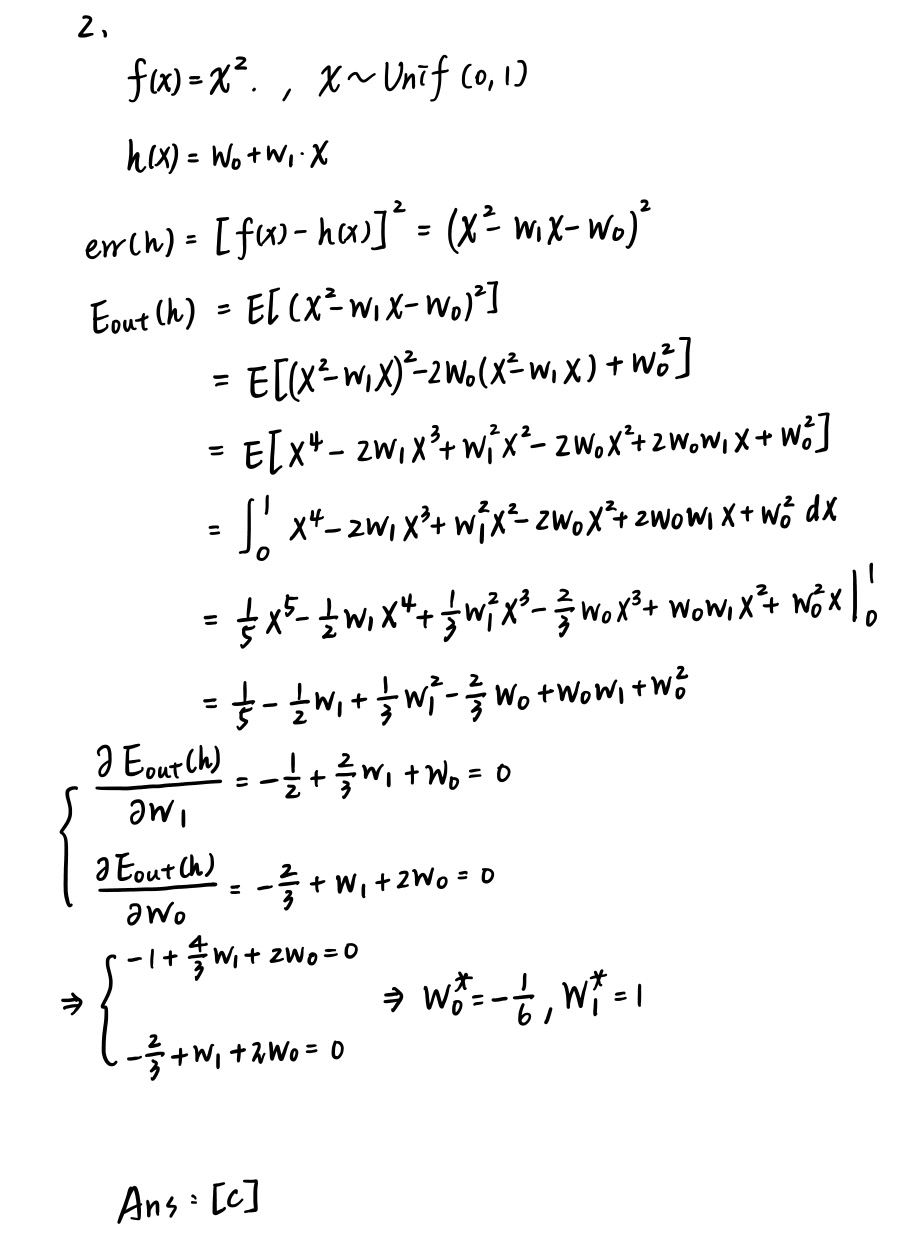 2.
f(x) = x². , x ~ Unif (0, 1)
h(x) = w₀ + w₁ · x
err(h) = [f(x) - h(x)]² = (x² - w₁x - w₀)²
E_out(h) = E[(x² - w₁x - w₀)²]
= E[(x² - w₁x)² - 2w₀(x² - w₁x) + w₀²]
= E[x⁴ - 2w₁x³ + w₁²x² - 2w₀x² + 2w₀w₁x + w₀²]
= ∫₀¹ x⁴ - 2w₁x³ + w₁²x² - 2w₀x² + 2w₀w₁x + w₀² dx
= 1/5 x⁵ - 1/2 w₁x⁴ + 1/3 w₁²x³ - 2/3 w₀x³ + w₀w₁x² + w₀²x |₀¹
= 1/5 - 1/2 w₁ + 1/3 w₁² - 2/3 w₀ + w₀w₁ + w₀²
{ ∂E_out(h)/∂w₁ = -1/2 + 2/3 w₁ + w₀ = 0
∂E_out(h)/∂w₀ = -2/3 + w₁ + 2w₀ = 0
⇒ { -1 + 4/3 w₁ + 2w₀ = 0
-2/3 + w₁ + 2w₀ = 0
⇒ w₀* = -1/6 , w₁* = 1
Ans : [c]